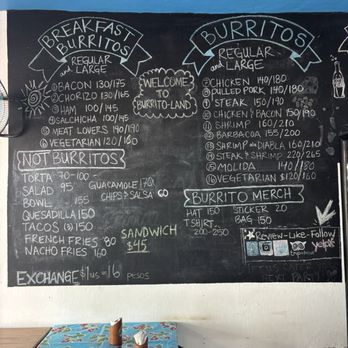 BREAKFAST
BURRITOS
REGULAR
and LARGE
① BACON 130/175
② CHORIZO 130/165
③ HAM 100/145
④ SALCHICHA 100/145
⑤ MEAT LOVERS 140/190
⑥ VEGETARIAN 120/160
WELCOME
TO
BURRITO-LAND
BURRITOS
REGULAR
and LARGE
① CHICKEN 140/180
② PULLED PORK 140/180
STEAK 150/190
CHICKEN / BACON 150/190
SHRIMP 160/210
BARBACOA 155/200
SHRIMP DIABLA 160/210
STEAK & SHRIMP 220/265
MOLIDA 140/180
VEGETARIAN $120/160
NOT BURRITOS
TORTA 70-100
SALAD 95
BOWL 155
QUESADILLA 150
TACOS (3) 150
FRENCH FRIES 80
NACHO FRIES 160
GUACAMOLE (70)
CHIPS & SALSA 60
SANDWICH
$45
BURRITO MERCH
HAT 150 STICKER 20
T SHIRT BAG 150
200-250
Review-Like-Follow
yelp
EXCHANGE $1us=16 pesos